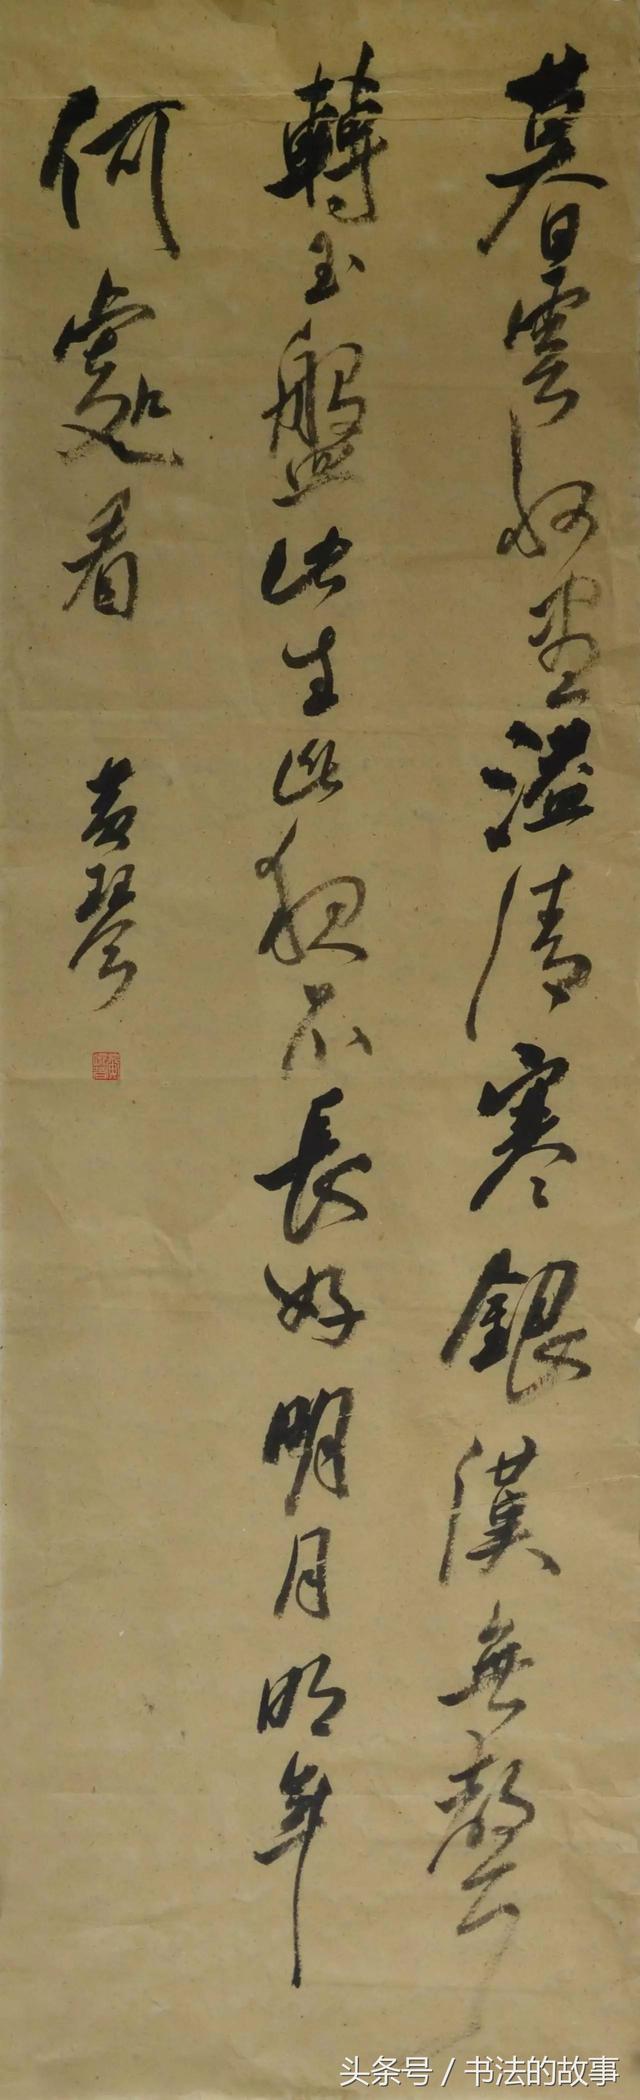 暮雲收盡溢清寒銀漢無聲
轉玉盤此生此夜不長好明月明年
何處看
黃琴
头条号 / 书法的故事